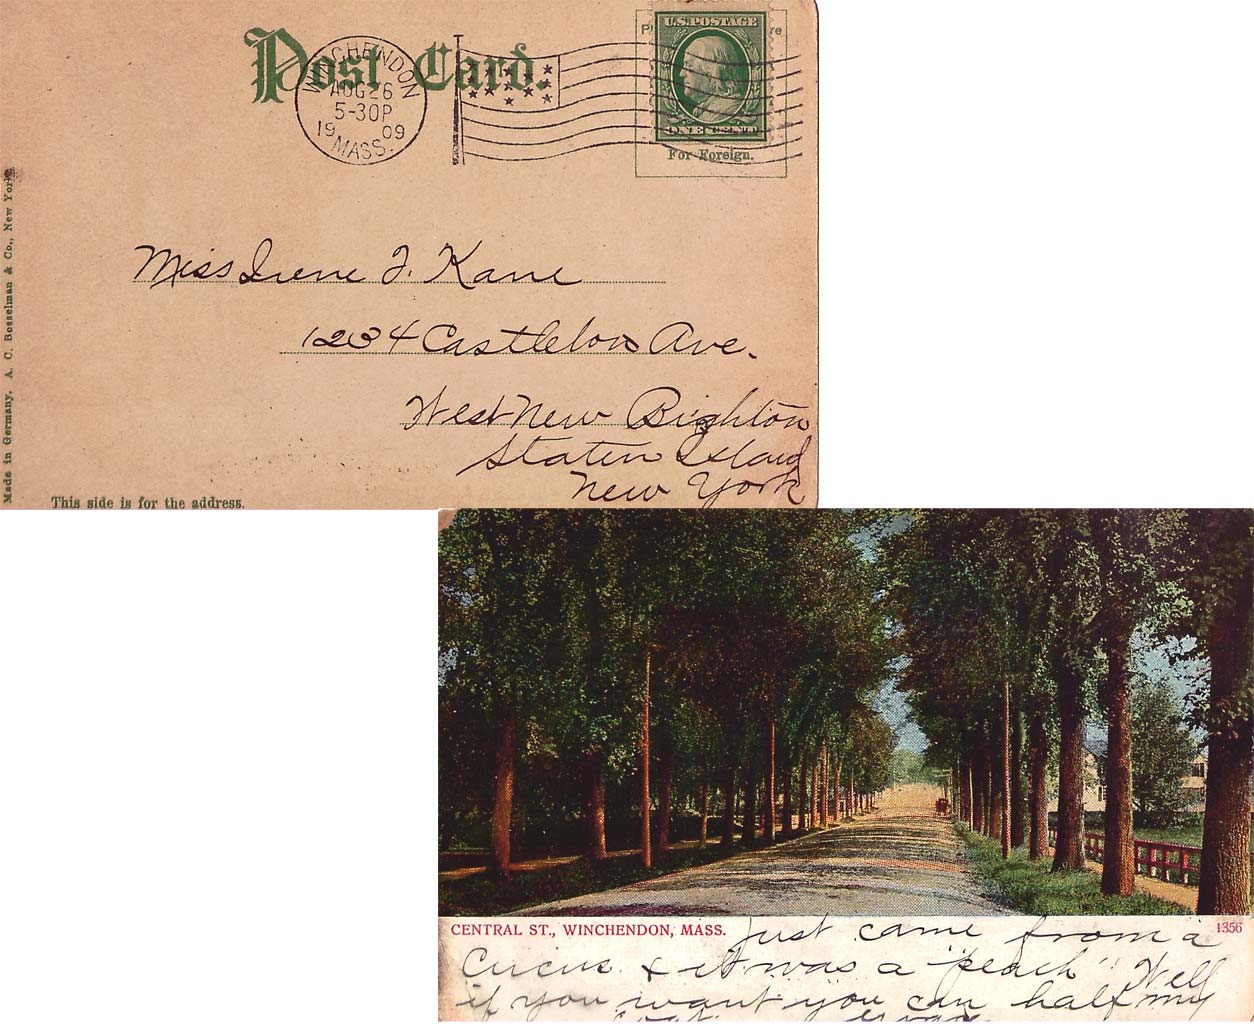 Post Card.
WINCHENDON
AUG 26
5-30P
1909
MASS.
U.S. POSTAGE
ONE CENT
For Foreign.
Miss Irene F. Kane
1234 Castleton Ave.
West New Brighton
Staten Island
New York
Made in Germany. A. C. Bosselman & Co., New York
This side is for the address.
CENTRAL ST., WINCHENDON, MASS.
1356
Just came from a
Circus & it was a "peach" Well
if you want you can half my